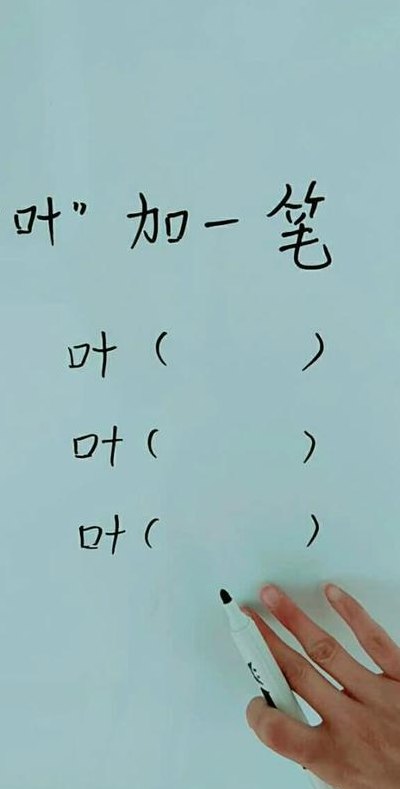 叶” 加一笔
叶（ ）
叶（ ）
叶（ ）